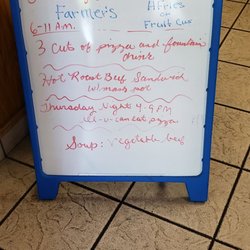 Farmer's
on
Fruit Cup
6-11 A.M.
3 cut of pizza and fountain
drink
Hot Roast Beef Sandwich
w/
Thursday Night 4-9 PM
all-u-can eat pizza
Soup: Vegetable beef